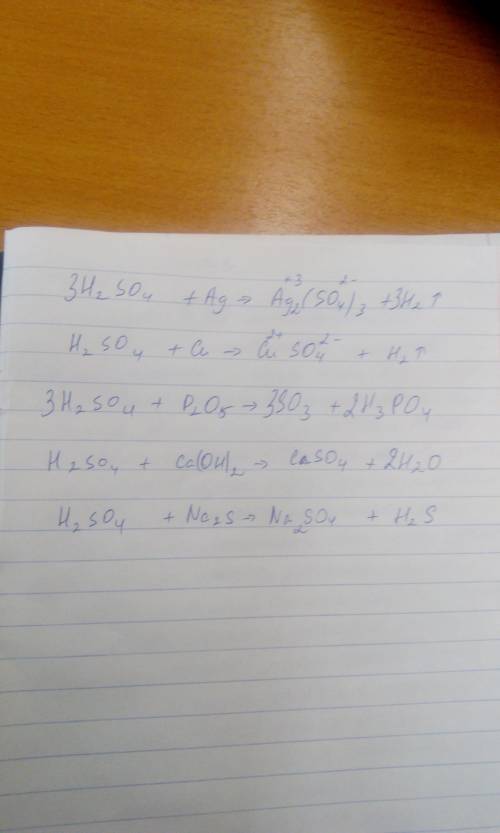 3H₂SO₄ + Ag → Ag₂⁺³(SO₄)₃²⁻ + 3H₂↑
H₂SO₄ + Cu → Cu²⁺SO₄²⁻ + H₂↑
3H₂SO₄ + P₂O₅ → 3SO₃ + 2H₃PO₄
H₂SO₄ + Ca(OH)₂ → CaSO₄ + 2H₂O
H₂SO₄ + Na₂S → Na₂SO₄ + H₂S